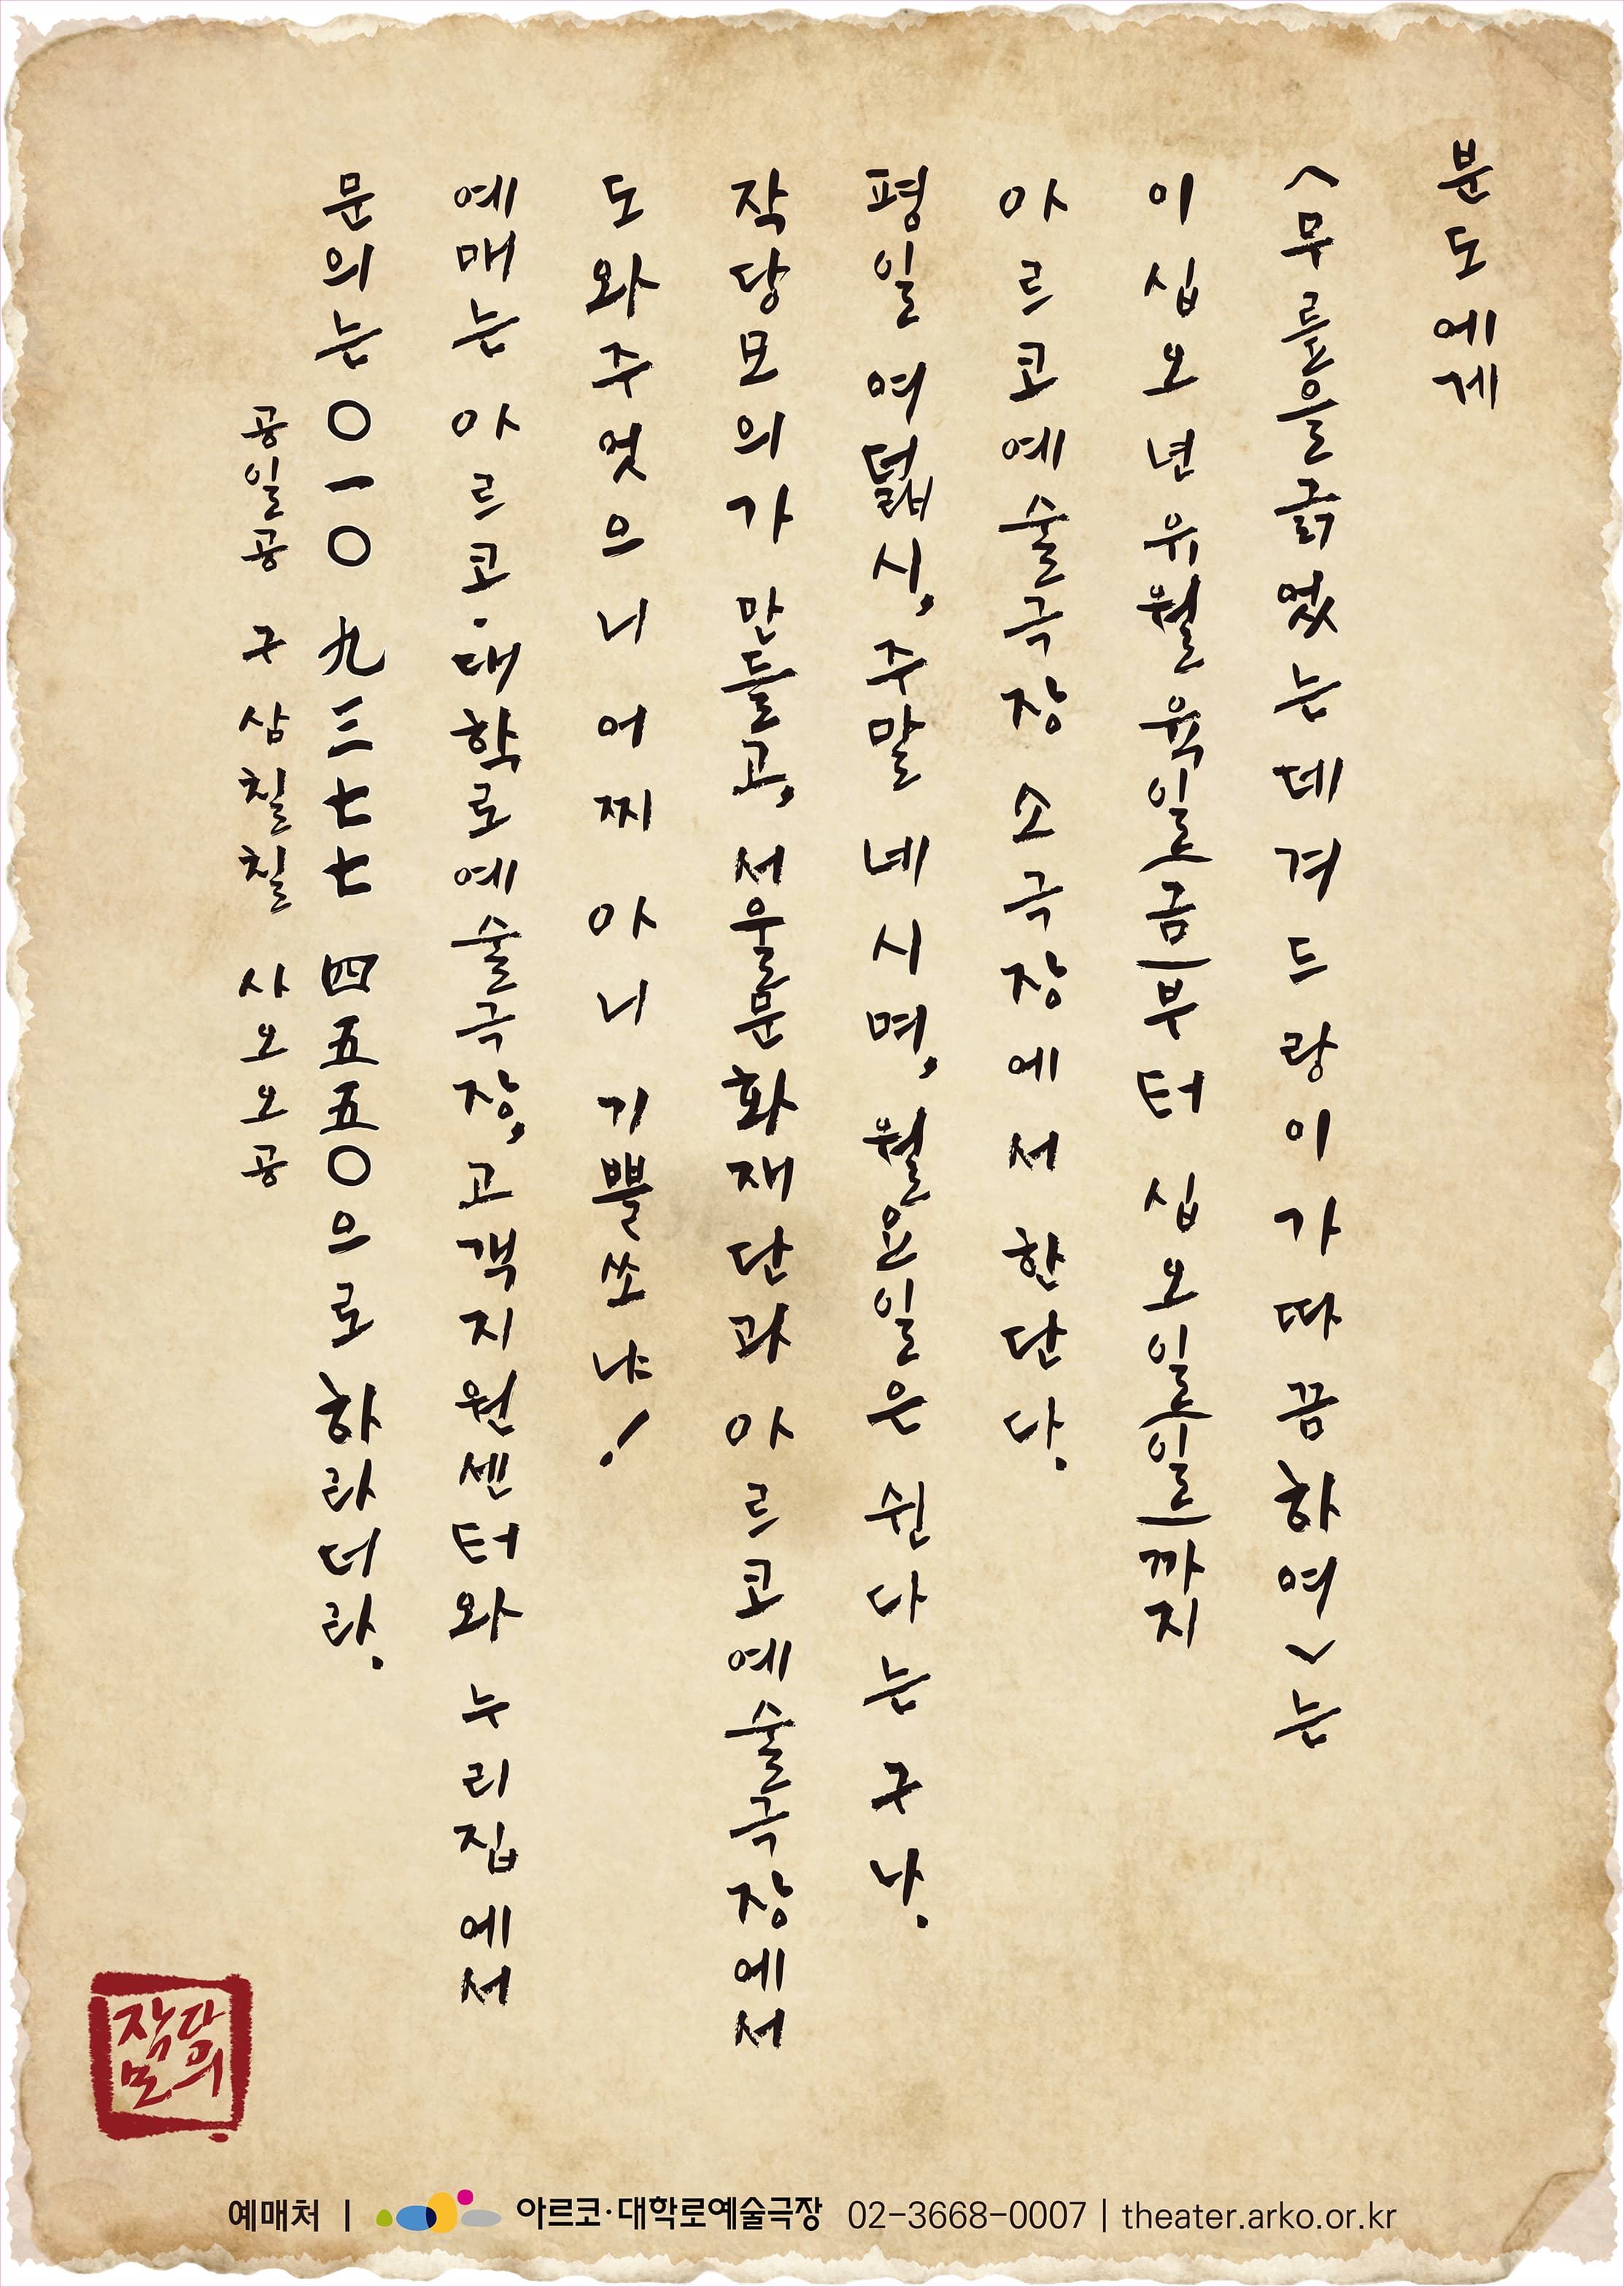 분도에게
<무릎을긁었는데겨드랑이가 따끔하여>는
이십오년 유월 육일(금)부터 십오일(일)까지
아르코예술극장 소극장에서 한단다.
평일 여덟시, 주말 네시며, 월요일은 쉰다는구나.
작당모의가 만들고, 서울문화재단과 아르코예술극장에서
도와주었으니 어찌 아니 기쁠쏘냐!
예매는 아르코·대학로예술극장, 고객지원센터와 누리집에서
문의는 〇一〇 九三七七 四五五〇으로 하라더라.
공일공 구삼칠칠 사오오공
작당모의
예매처 | 아르코·대학로예술극장 02-3668-0007 | theater.arko.or.kr